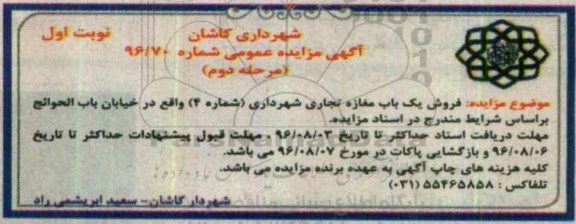 شهرداری کاشان
نوبت اول
آگهی مزایده عمومی شماره ۹۶/۷۰
(مرحله دوم)
موضوع مزایده: فروش یک باب مغازه تجاری شهرداری (شماره ۴) واقع در خیابان باب الحوائج
براساس شرایط مندرج در اسناد مزایده.
مهلت دریافت اسناد حداکثر تا تاریخ ۹۶/۰۸/۰۳ ، مهلت قبول پیشنهادات حداکثر تا تاریخ
۹۶/۰۸/۰۶ و بازگشایی پاکات در مورخ ۹۶/۰۸/۰۷ می باشد.
کلیه هزینه های چاپ آگهی به عهده برنده مزایده می باشد.
تلفاکس : ۵۵۴۶۵۸۵۸ (۰۳۱)
شهردار کاشان- سعید ابریشمی راد